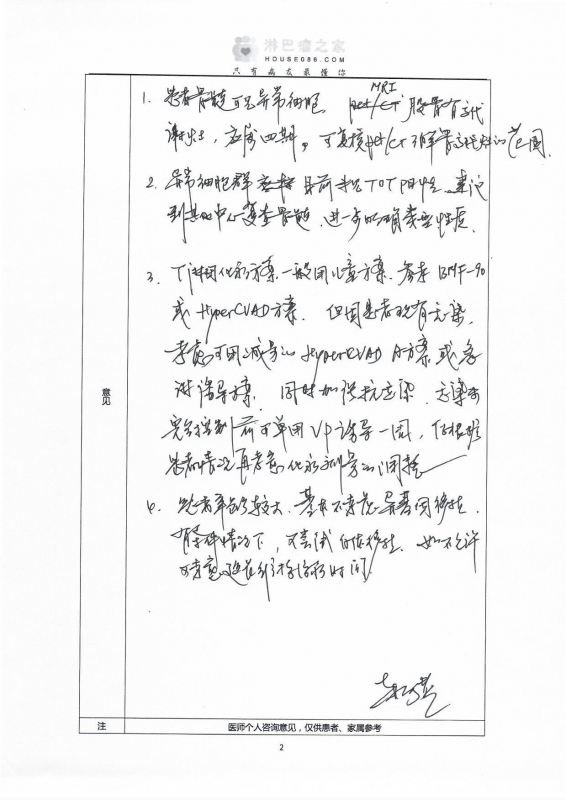 淋巴瘤之家
HOUSE086.COM
只有病友最懂你
1. 患者骨髓可见异常细胞,
MRI
pet/CT 股骨有高代
谢灶, 应为四期, 可复核pet/CT了解骨高代谢灶的范围
2. 异常细胞群 目前 TDT阴性, 建议
到其他中心复查骨髓, 进一步明确类型性质
3. 化疗方案一般用儿童方案, 参考BMF-90
或HyperCVAD方案. 但因患者现有感染,
考虑可用减量的HyperCVAD A方案或
诱导方案. 同时加强抗感染. 感染
完全控制前可单用VP诱导一周,
患者情况再考虑化疗剂量的调整
4. 患者年龄较大, 基本不考虑异基因移植.
有条件情况下, 可尝试自体移植. 如不允许
可考虑延长维持治疗时间
意见
注
医师个人咨询意见，仅供患者、家属参考
2